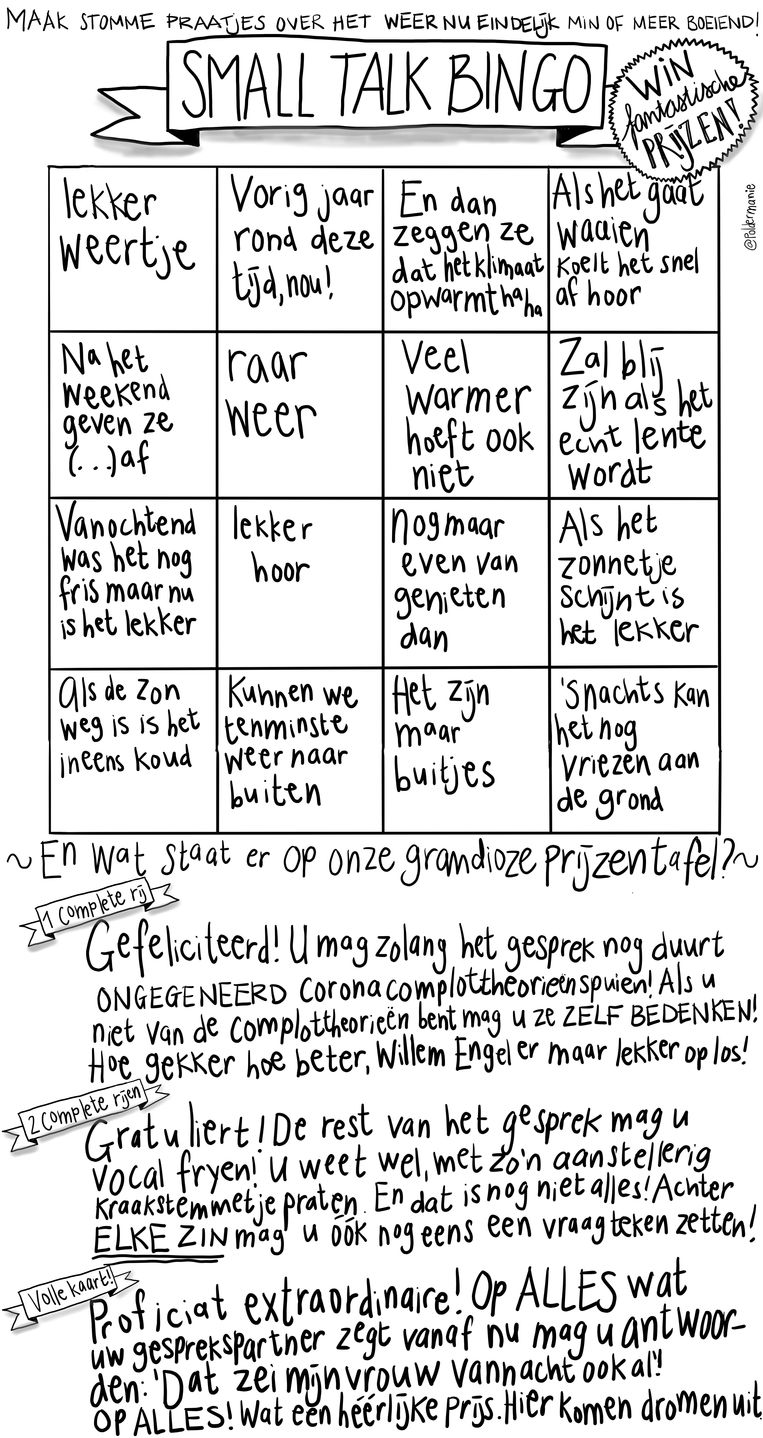 MAAK STOMME PRAATJES OVER HET WEER NU EINDELIJK MIN OF MEER BOEIEND!
SMALL TALK BINGO
WIN
fantastische
PRIJZEN!
@Poldermanie
lekker
weertje
Vorig jaar
rond deze
tijd, nou!
En dan
zeggen ze
dat het klimaat
opwarmt haha
Als het gaat
waaien
koelt het snel
af hoor
Na het
weekend
geven ze
(...) af
raar
weer
Veel
warmer
hoeft ook
niet
Zal blij
zijn als het
echt lente
wordt
Vanochtend
was het nog
fris maar nu
is het lekker
lekker
hoor
Nog maar
even van
genieten
dan
Als het
zonnetje
schijnt is
het lekker
Als de zon
weg is is het
ineens koud
Kunnen we
tenminste
weer naar
buiten
Het zijn
maar
buitjes
'Snachts kan
het nog
vriezen aan
de grond
~En wat staat er op onze grandioze prijzentafel?~
1 complete rij
Gefeliciteerd! U mag zolang het gesprek nog duurt
ONGEGENEERD Corona complottheorieën spuien! Als u
niet van de complottheorieën bent mag u ze ZELF BEDENKEN!
Hoe gekker hoe beter, Willem Engel er maar lekker op los!
2 complete rijen
Gratuliert! De rest van het gesprek mag u
vocal fryen! U weet wel, met zo'n aanstellerig
kraakstemmetje praten. En dat is nog niet alles! Achter
ELKE ZIN mag u óók nog eens een vraagteken zetten!
Volle kaart!
Proficiat extraordinaire! Op ALLES wat
uw gesprekspartner zegt vanaf nu mag u antwoor-
den: 'Dat zei mijn vrouw vannacht ook al'!
OP ALLES! Wat een héérlijke prijs. Hier komen dromen uit.